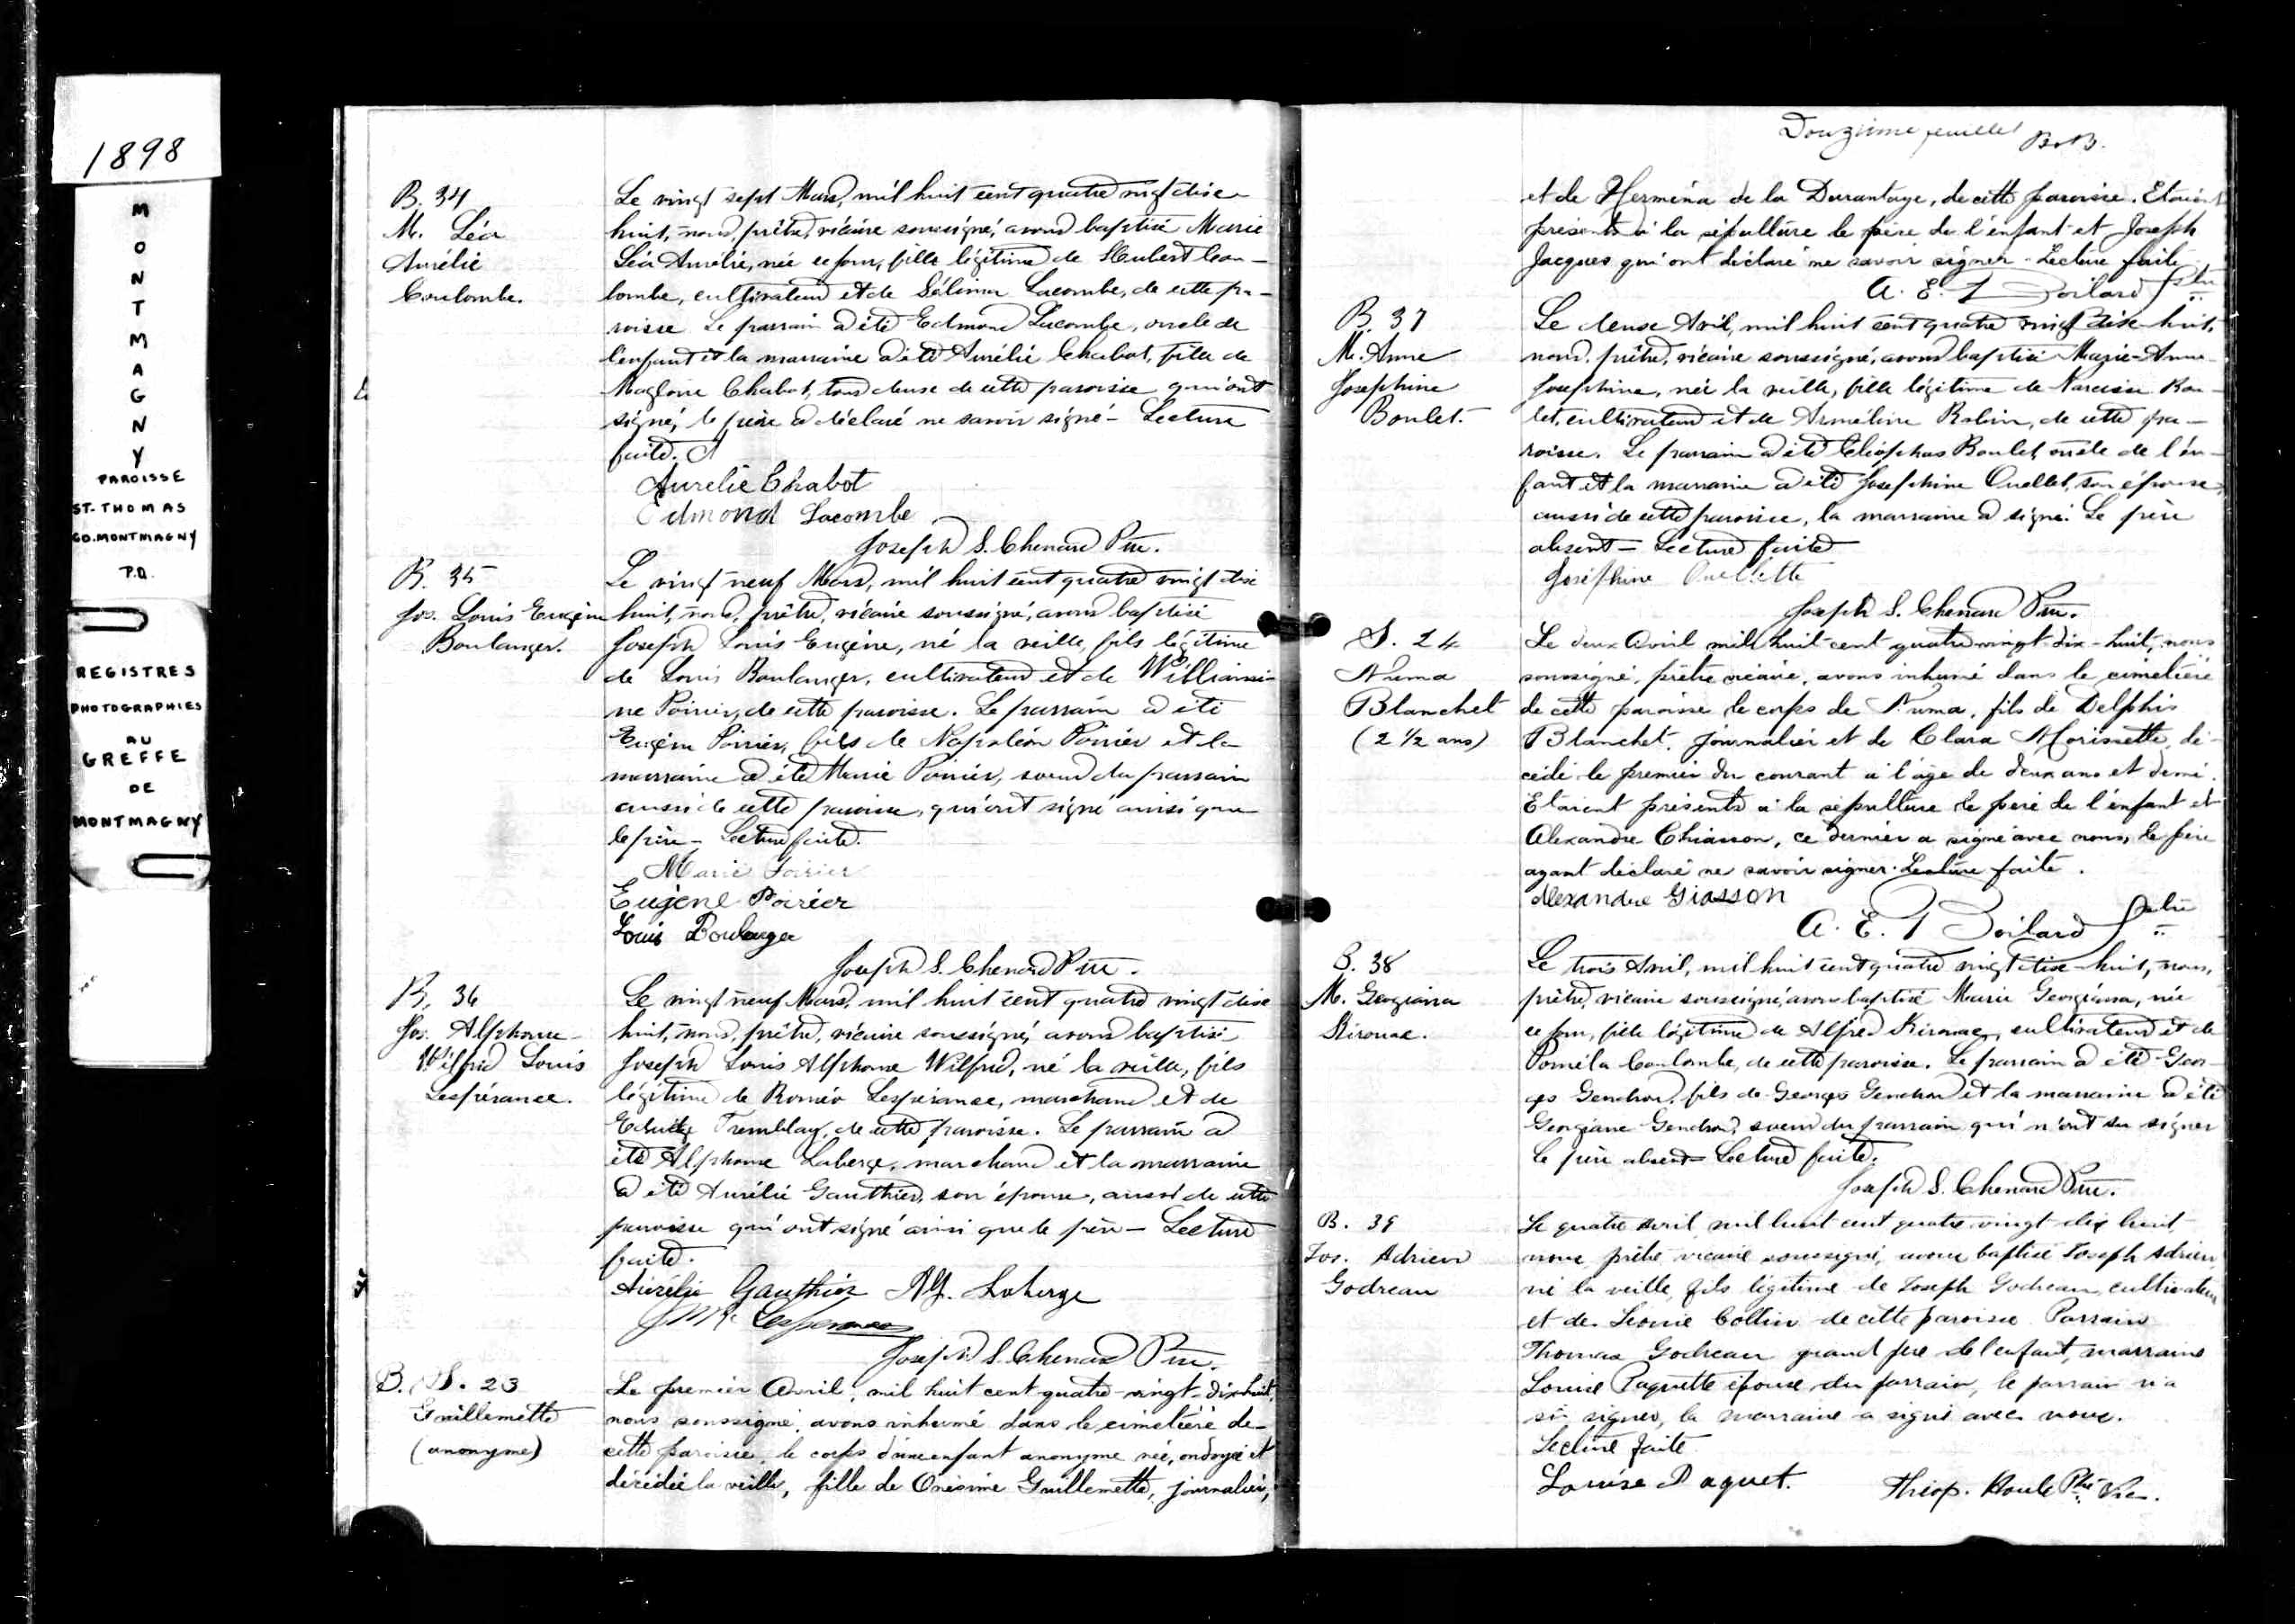 1898
MONTMAGNY
PAROISSE
ST. THOMAS
CO. MONTMAGNY
P.Q.
REGISTRES
PHOTOGRAPHIES
AU
GREFFE
DE
MONTMAGNY
B. 34
M. Léa
Aurélie
Coulombe.
Le vingt sept Mars, mil huit cent quatre vingt dise
huit, nous, prêtre, vicaire soussigné, avons baptisé Marie
Léa Aurélie, née ce jour, fille légitime de Hubert Cou-
lombe, cultivateur et de Sélima Lacombe, de cette pa-
roisse. Le parrain a été Edmond Lacombe, oncle de
l'enfant et la marraine a été Aurélie Chabot, fille de
Magloire Chabot, tous deuse de cette paroisse qui ont
signé, le père a déclaré ne savoir signé - Lecture
faite.
Aurelie Chabot
Edmond Lacombe
Joseph S. Chenard Ptre.
B. 35
Jos. Louis Eugène
Boulanger.
Le vingt neuf Mars, mil huit cent quatre vingt dise
huit, nous, prêtre, vicaire soussigné, avons baptisé
Joseph Louis Eugène, né la veille, fils légitime
de Louis Boulanger, cultivateur et de Williamsi-
ne Poirier, de cette paroisse. Le parrain a été
Eugène Poirier, fils de Napoléon Poirier et la
marraine a été Marie Poirier, soeur du parrain
aussi de cette paroisse, qui ont signé ainsi que
le père - Lecture faite.
Marie Poirier
Eugène Poirier
Louis Boulanger
Joseph S. Chenard Ptre.
B. 36
Jos. Alphonse
Wilfrid Louis
Lespérance.
Le vingt neuf Mars, mil huit cent quatre vingt dise
huit, nous, prêtre, vicaire soussigné, avons baptisé
Joseph Louis Alphonse Wilfrid, né la veille, fils
légitime de Roméo Lespérance, marchand et de
Tremblay, de cette paroisse. Le parrain a
été Alphonse Laberge, marchand et la marraine
a été Aurélie Gauthier, son épouse, aussi de cette
paroisse qui ont signé ainsi que le père - Lecture
faite.
Aurélie Gauthier Alf. Laberge
Lesperance
Joseph S. Chenard Ptre.
B. S. 23
Guillemette
(anonyme)
Le premier Avril, mil huit cent quatre-vingt-dix-huit,
nous soussigné, avons inhumé dans le cimetière de
cette paroisse, le corps d'une enfant anonyme née, ondoyée et
décédée la veille, fille de Onésime Guillemette, journalier,
Douzième feuillet
et de Hermena de la Durantaye, de cette paroisse. Etaient
présents à la sépulture le père de l'enfant et Joseph
Jacques qui ont déclaré ne savoir signer - Lecture faite
A. E. Boilard Ptre
B. 37
M. Anne
Josephine
Boulet.
Le deuse Avril, mil huit cent quatre vingt dise huit,
nous, prêtre, vicaire soussigné, avons baptisé Marie-Anne
Josephine, née la veille, fille légitime de Narcisse Bou-
let, cultivateur et de Arméline Robin, de cette pa-
roisse. Le parrain a été Cléophas Boulet, oncle de l'en-
fant et la marraine a été Josephine Ouellet, son épouse,
aussi de cette paroisse, la marraine a signé. Le père
absent - Lecture faite
Joséphine Ouellette
Joseph S. Chenard Ptre.
S. 24
Numa
Blanchet
(2 1/2 ans)
Le deux Avril mil huit cent quatre-vingt-dix-huit, nous
soussigné, prêtre vicaire, avons inhumé dans le cimetière
de cette paroisse le corps de Numa, fils de Delphis
Blanchet, journalier et de Clara Morissette, dé-
cédé le premier du courant à l'âge de deux ans et demi.
Etaient présents à la sépulture le père de l'enfant et
Alexandre Chiasson, ce dernier a signé avec nous, le père
ayant déclaré ne savoir signer. Lecture faite.
Alexandre Giasson
A. E. Boilard Ptre
B. 38
M. Georgianna
Kirouac.
Le trois Avril, mil huit cent quatre vingt dise-huit, nous,
prêtre, vicaire soussigné, avons baptisé Marie Georgianna, née
ce jour, fille légitime de Alfred Kirouac, cultivateur et de
Poméla Coulombe, de cette paroisse. Le parrain a été Geor-
ges Gendron, fils de Georges Gendron et la marraine a été
Georgiane Gendron, soeur du parrain qui n'ont su signer
le père absent - Lecture faite.
Joseph S. Chenard Ptre.
B. 39
Jos. Adrien
Godreau
Le quatre avril mil huit cent quatre-vingt-dix huit
nous prêtre vicaire soussigné, avons baptisé Joseph Adrien
né la veille, fils légitime de Joseph Godreau, cultivateur
et de Léonie Collin de cette paroisse. Parrain
Thomas Godreau grand père de l'enfant, marraine
Louise Paquette épouse du parrain, le parrain n'a
su signer, la marraine a signé avec nous.
Lecture faite
Louise Paquet. Théop. Houle Ptre Vic.